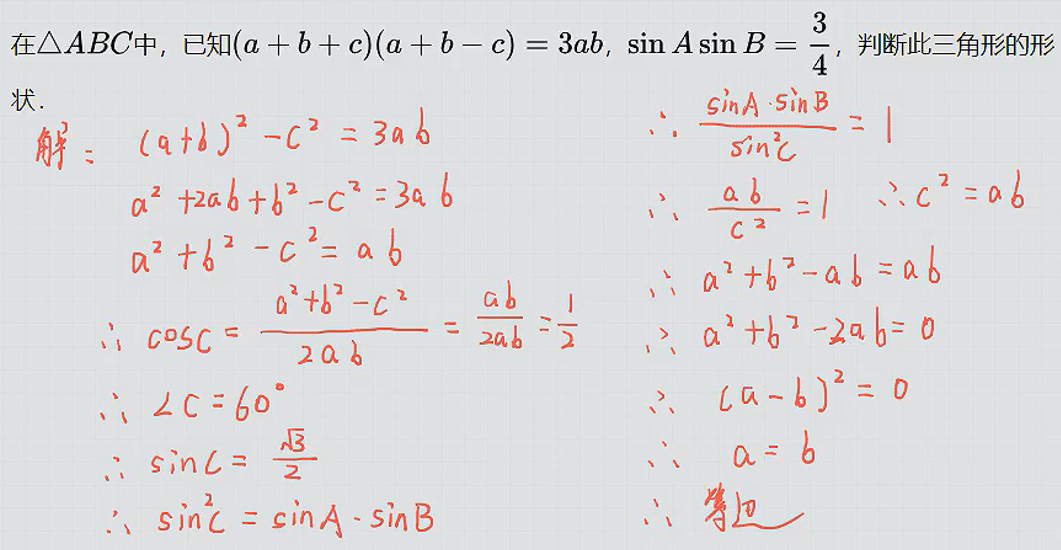 在△ABC中，已知(a+b+c)(a+b−c)=3ab，sin A sin B=\frac{3}{4}，判断此三角形的形
状．
解： (a+b)²−c²=3ab
a²+2ab+b²−c²=3ab
a²+b²−c²=ab
∴ cosC=\frac{a²+b²−c²}{2ab}=\frac{ab}{2ab}=\frac{1}{2}
∴ ∠C=60°
∴ sinC=\frac{√3}{2}
∴ sin²C=sinA·sinB
∴ \frac{sinA·sinB}{sin²C}=1
∴ \frac{ab}{c²}=1 ∴c²=ab
∴ a²+b²−ab=ab
∴ a²+b²−2ab=0
∴ (a−b)²=0
∴ a=b
∴ 等边